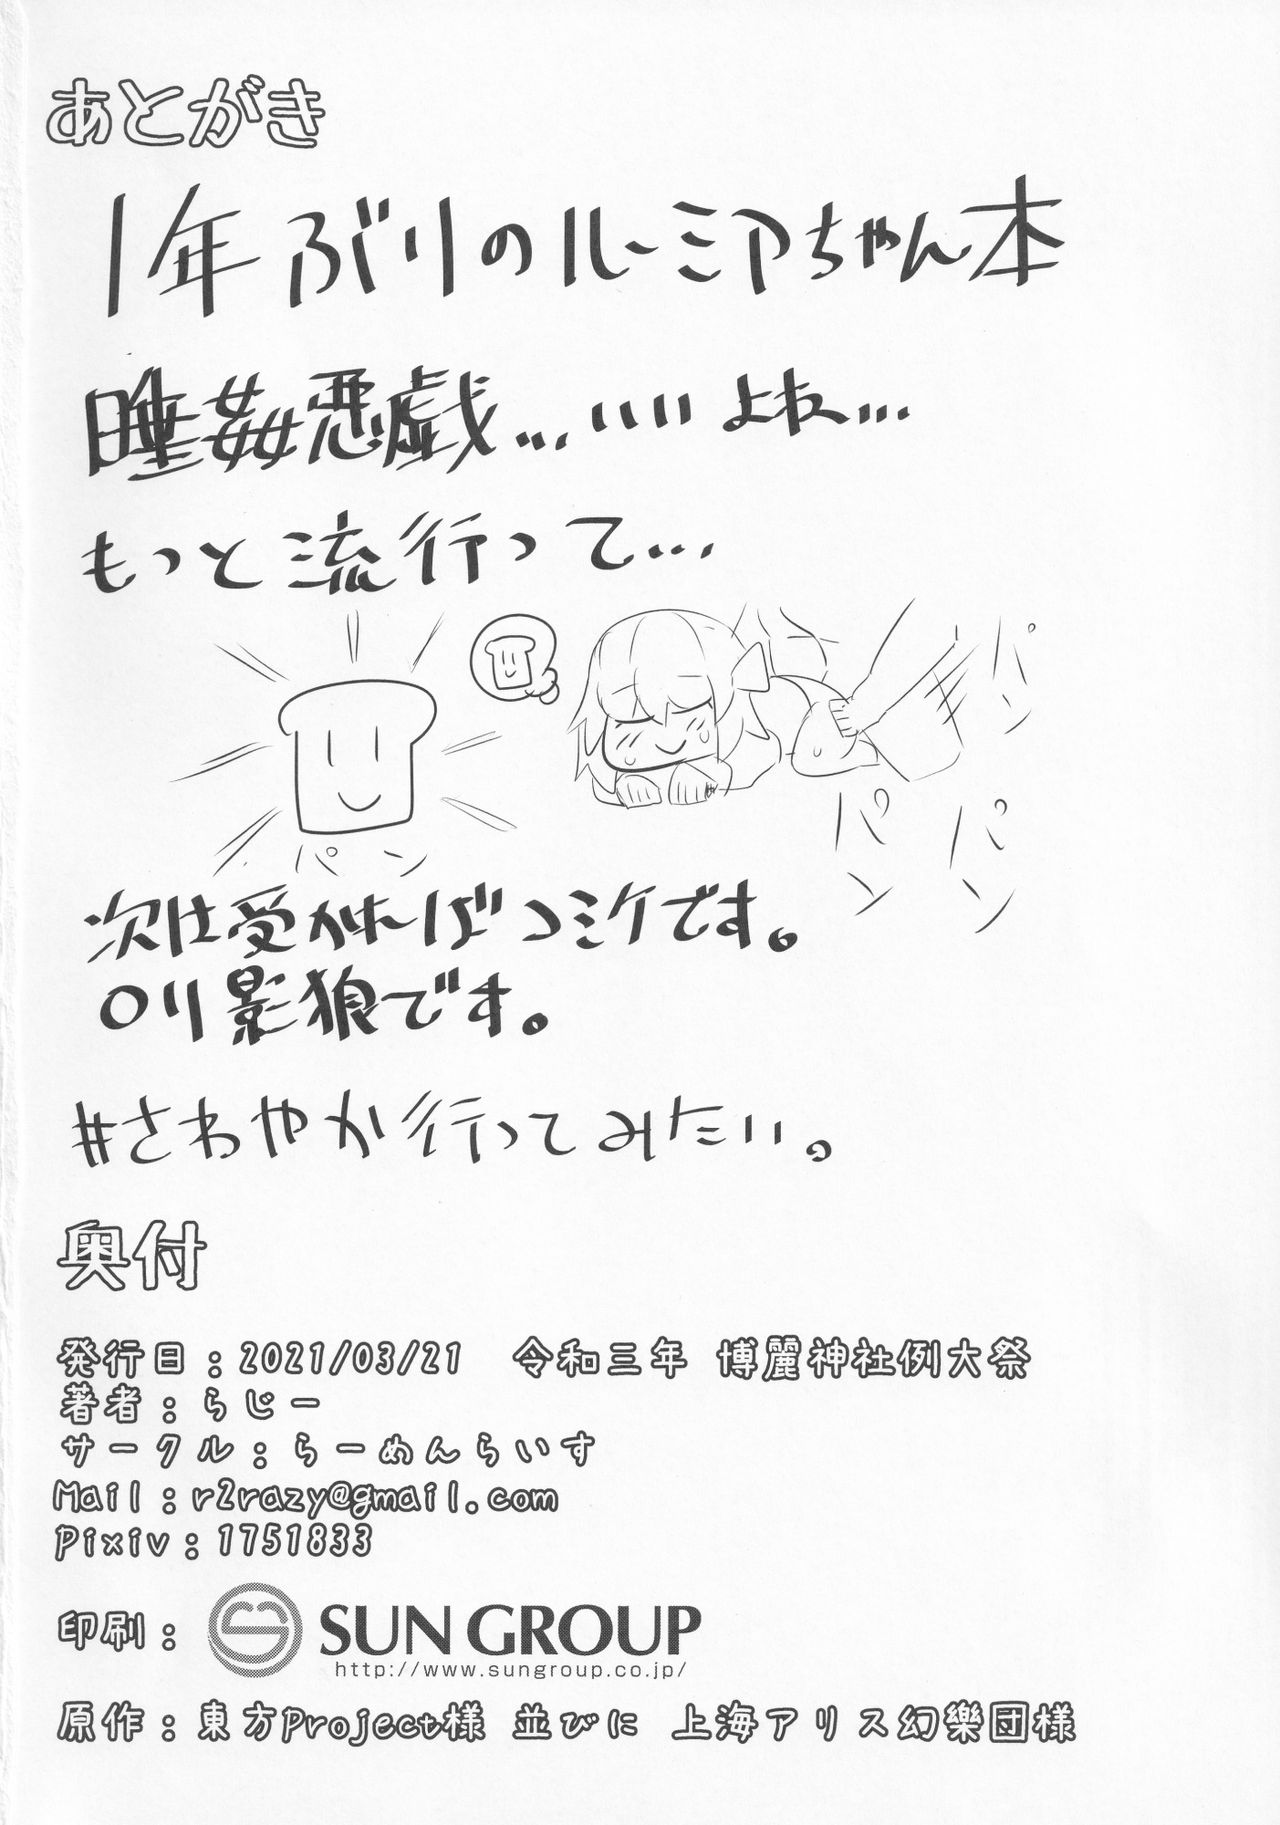 あとがき
1年ぶりのルーミアちゃん本
睡姦悪戯...いいよね...
もっと流行って...
パン
パン
パン
パン
次は受かればコミケです。
〇リ影狼です。
#さわやか行ってみたい。
奥付
発行日：2021/03/21 令和三年 博麗神社例大祭
著者：らじー
サークル：らーめんらいす
Mail：r2razy@gmail.com
Pixiv：1751833
印刷： SUN GROUP
http://www.sungroup.co.jp/
原作：東方Project様 並びに 上海アリス幻樂団様